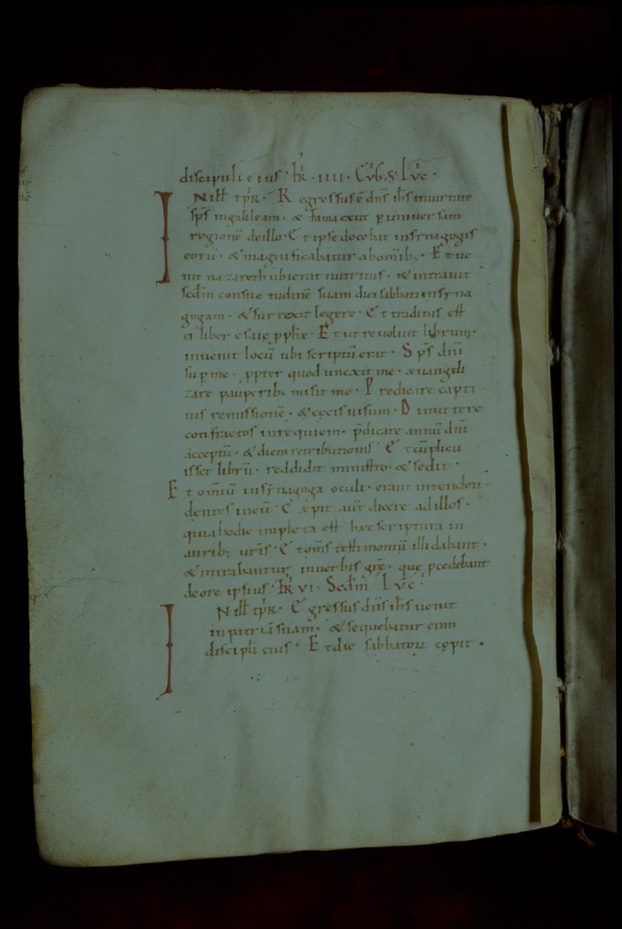 discipuli eius · F̄R · IIII · Cvb. S Lvc̄ ·
INill̄ tp̄r̄ · Regressus ē dn̄s ih̄s in uirtute
sp̄s in galileam · & fama exiit p uniuersam
regionē de illo · Et ipse docebat in synagogis
eorū · & magnificabatur ab omnib; · Et ue
nit nazareth ubi erat nutritus · & intrauit
sedm̄ consue tudinē suam die sabbati in syna
gogam · & surrexit legere · Et traditus est
ei liber esaię pph̄e · Et ut reuoluit librum ·
inuenit locū ubi scriptū erat · Sps̄ dn̄i
sup me · ppter quod uncxit me · æuangeli
zare pauperib; misit me · Predicare capti
uis remissionē · & cęcis uisum · Dimittere
confractos in requiem · p̄dicare annū dn̄i
acceptū · & diem retributionis · Et cū plicu
isset librū · reddidit ministro · & sedit ·
Et omniū in synagoga oculi · erant intenden
dentes in eū · Cæpit aut̄ dicere ad illos ·
quia hodie impleta est hæc scriptura in
aurib; uris̄ · Et om̄s testimoniū illi dabant ·
& mirabantur in uerbis gr̄ę · quę pcedebant
de ore ipsius · F̄R VI · Sedm̄ Lvc̄ ·
INill̄ tp̄r̄ · Egressus dn̄s ih̄s uenit
in patriā suam · & sequebatur eum
discipli eius · Et die sabbatorū cępit ·